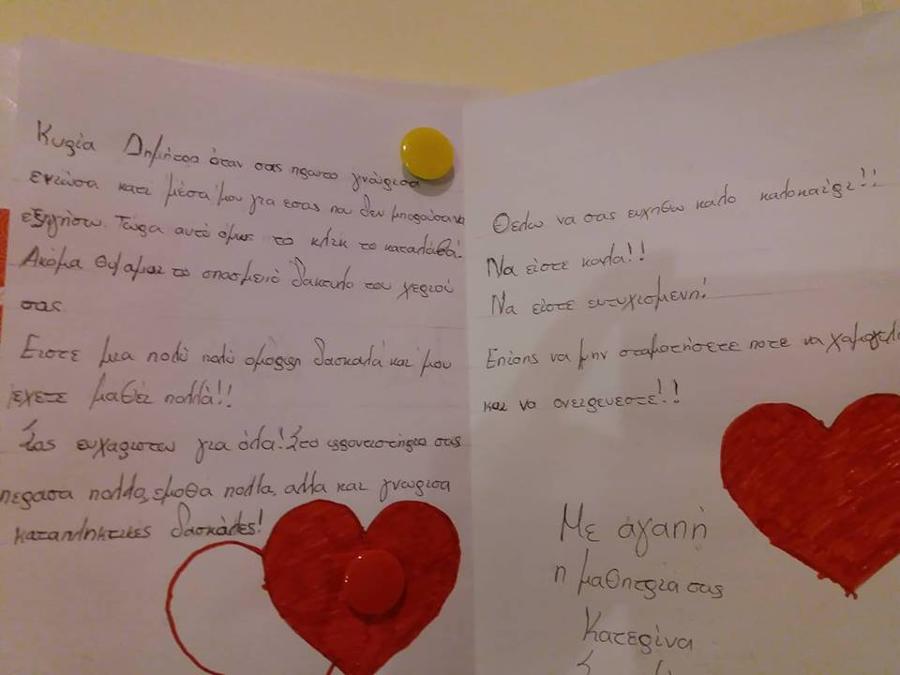 Κυρία Δημήτρα όταν σας πρωτο γνώρισα
ενιωσα κατι μέσα μου για εσας που δεν μπορούσα να
εξηγήσω. Τώρα αυτό όμως το κλικ το καταλαβα!
Ακόμα θυμαμαι το σπασμενο δακτυλο του χεριού
σας.
Ειστε μια πολύ πολύ όμορφη δασκαλά και μου
έχετε μαθει πολλά!!
Σας ευχαριστω για όλα! Στο φροντιστήριο σας
περασα πολλα, εμαθα πολλα, αλλα και γνωρισα
καταπληκτικες δασκάλες!
Θελω να σας ευχηθω καλο καλοκαίρι!!
Να είστε καλα!!
Να είστε ευτυχισμενη!
Επίσης να μην σταματήσετε ποτε να χαμογελα
και να ονειρευεστε!!
Με άγαπη
η μαθητρια σας
Κατερίνα